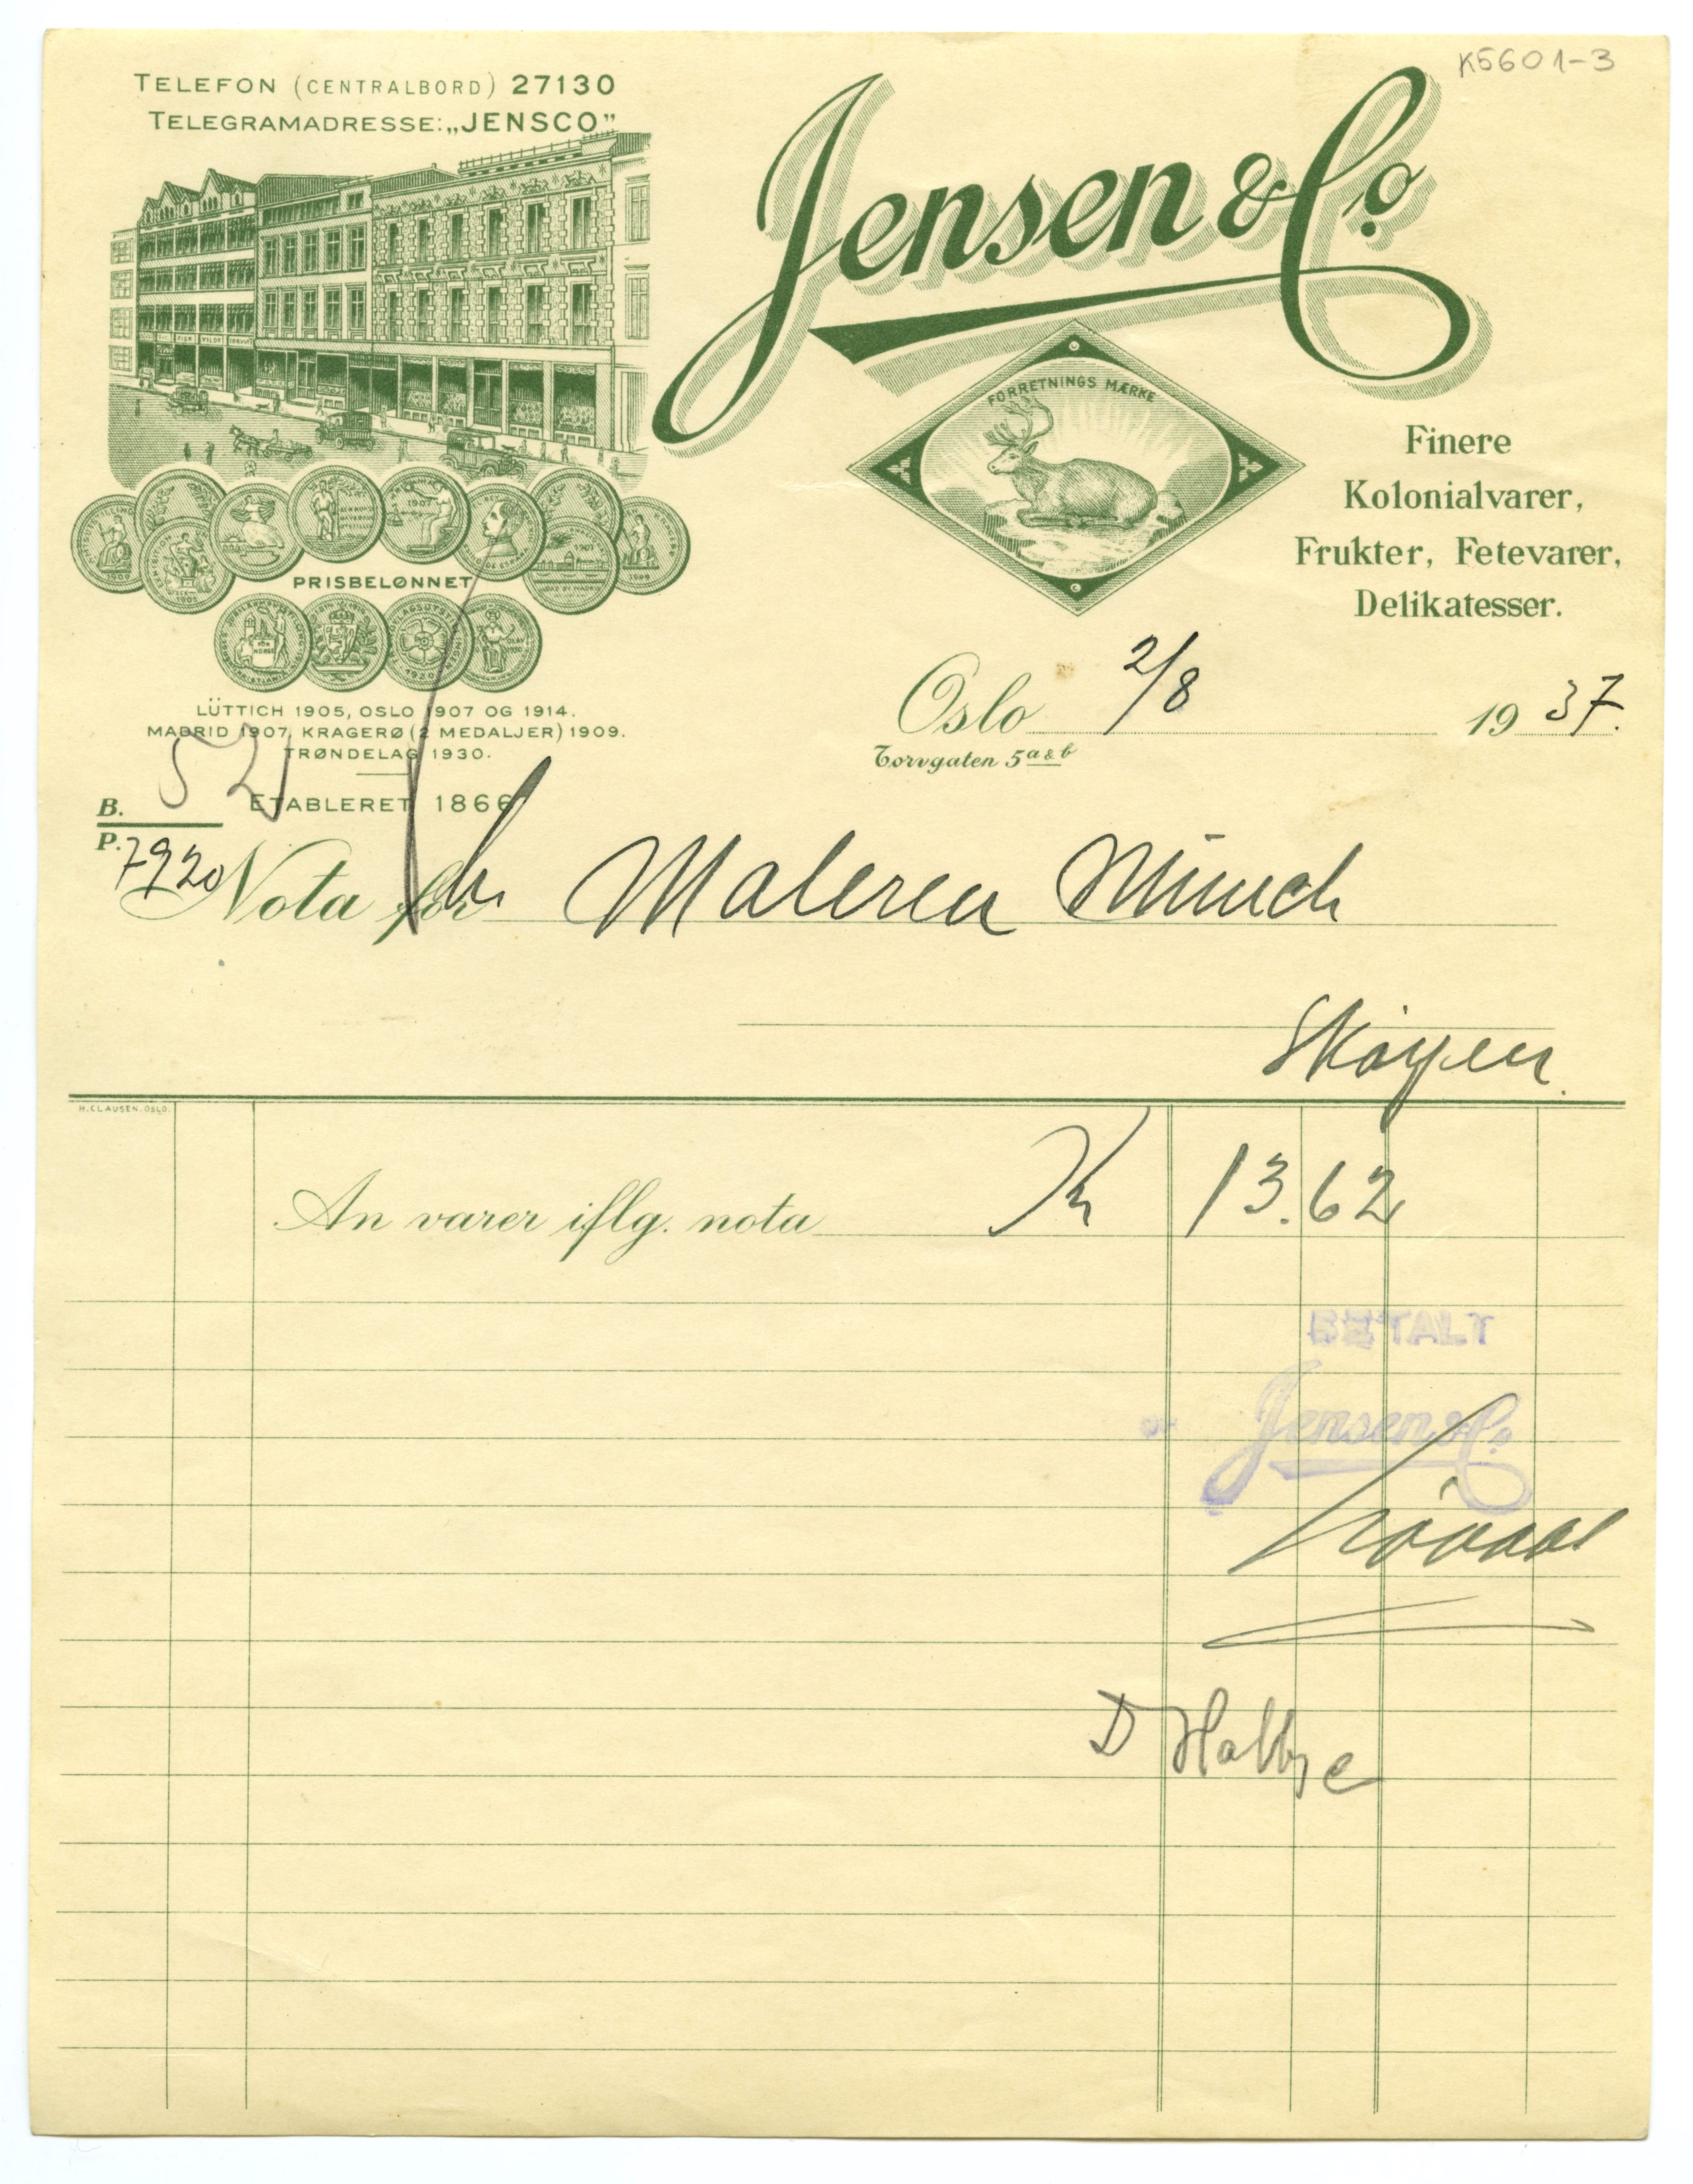 K5601-3
TELEFON (CENTRALBORD) 27130
TELEGRAMADRESSE: „JENSCO”
Jensen & Co
FORRETNINGS MÆRKE
Finere
Kolonialvarer,
Frukter, Fetevarer,
Delikatesser.
PRISBELØNNET
LÜTTICH 1905, OSLO 1907 OG 1914.
MADRID 1907, KRAGERØ (2 MEDALJER) 1909.
TRØNDELAG 1930.
ETABLERET 1866
Oslo 2/8 1937.
Torvgaten 5 a & b
B. 52
P. 7920
Nota for Hr Maleren Münch
Skøyen.
H. CLAUSEN. OSLO.
An varer iflg. nota Kr 13.62
BETALT
Jensen & Co
D